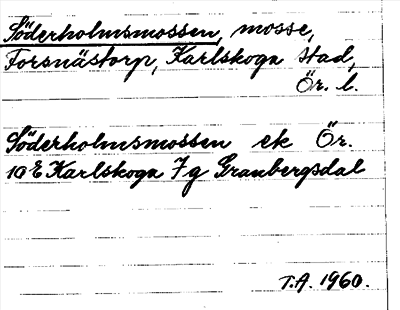 Söderholmsmossen, mosse,
Forsnästorp, Karlskoga stad,
Ör. l.
Söderholmsmossen ek Ör.
10 E Karlskoga 7 g Granbergsdal
T.A. 1960.